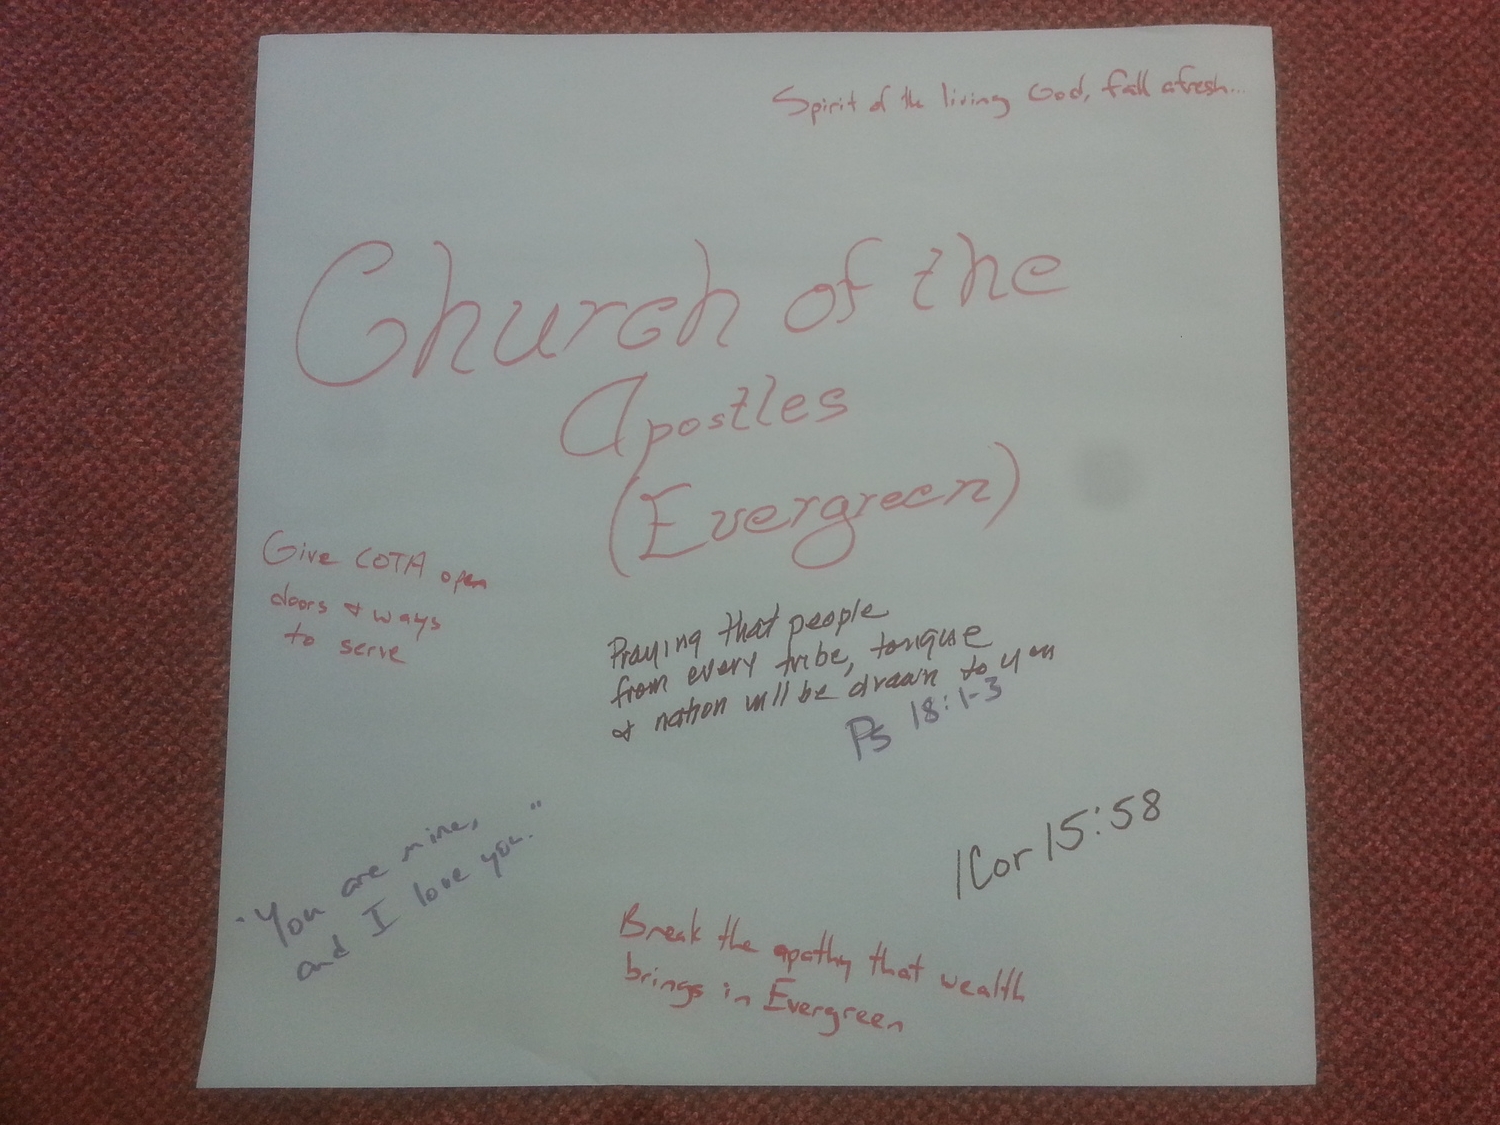 Spirit of the living God, fall afresh...
Church of the
Apostles
(Evergreen)
Give COTA open
doors & ways
to serve
Praying that people
from every tribe, tongue
& nation will be drawn to you
Ps 18:1-3
"You are mine,
and I love you."
1Cor 15:58
Break the apathy that wealth
brings in Evergreen